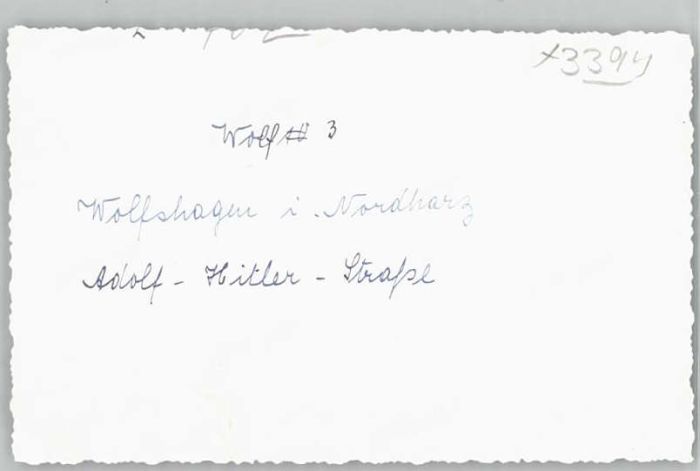 x3394
Wolfs 3
Wolfshagen i. Nordharz
Adolf - Hitler - Straße